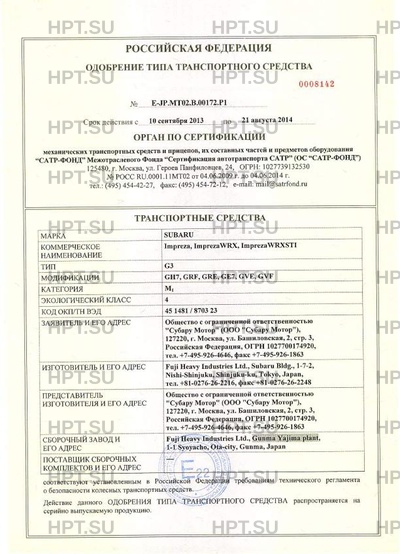 РОССИЙСКАЯ ФЕДЕРАЦИЯ
ОДОБРЕНИЕ ТИПА ТРАНСПОРТНОГО СРЕДСТВА
0008142
№ E-JP.MT02.B.00172.P1
Срок действия с 10 сентября 2013 по 21 августа 2014
ОРГАН ПО СЕРТИФИКАЦИИ
механических транспортных средств и прицепов, их составных частей и предметов оборудования
"САТР-ФОНД" Межотраслевого Фонда "Сертификация автотранспорта САТР" (ОС "САТР-ФОНД")
125480, г. Москва, ул. Героев Панфиловцев, 24, ОГРН: 1027739132530
№ РОСС RU.0001.11МТ02 от 04.06.2009 г. до 04.06.2014 г.
тел.: (495) 454-42-27, факс: (495) 454-72-12, e-mail: mail@satrfond.ru
ТРАНСПОРТНЫЕ СРЕДСТВА
МАРКА SUBARU
КОММЕРЧЕСКОЕ НАИМЕНОВАНИЕ Impreza, ImprezaWRX, ImprezaWRXSTI
ТИП G3
МОДИФИКАЦИИ GH7, GRF, GRE, GE7, GVE, GVF
КАТЕГОРИЯ M1
ЭКОЛОГИЧЕСКИЙ КЛАСС 4
КОД ОКП/ТН ВЭД 45 1481 / 8703 23
ЗАЯВИТЕЛЬ И ЕГО АДРЕС Общество с ограниченной ответственностью
"Субару Мотор" (ООО "Субару Мотор"),
127220, г. Москва, ул. Башиловская, 2, стр. 3,
Российская Федерация, ОГРН 1027700174920,
тел. +7-495-926-4646, факс +7-495-926-1863
ИЗГОТОВИТЕЛЬ И ЕГО АДРЕС Fuji Heavy Industries Ltd., Subaru Bldg., 1-7-2,
Nishi-Shinjuku, Shinjuku-ku, Tokyo, Japan,
тел. +81-0276-26-2216, факс+81-0276-26-2248
ПРЕДСТАВИТЕЛЬ ИЗГОТОВИТЕЛЯ И ЕГО АДРЕС Общество с ограниченной ответственностью
"Субару Мотор" (ООО "Субару Мотор"),
127220, г. Москва, ул. Башиловская, 2, стр. 3,
Российская Федерация, ОГРН 1027700174920,
тел. +7-495-926-4646, факс +7-495-926-1863
СБОРОЧНЫЙ ЗАВОД И ЕГО АДРЕС Fuji Heavy Industries Ltd., Gunma Yajima plant,
1-1 Syoyacho, Ota-city, Gunma, Japan
ПОСТАВЩИК СБОРОЧНЫХ КОМПЛЕКТОВ И ЕГО АДРЕС —
E 22
соответствуют установленным в Российской Федерации требованиям технического регламента
о безопасности колесных транспортных средств.
Действие данного ОДОБРЕНИЯ ТИПА ТРАНСПОРТНОГО СРЕДСТВА распространяется на
серийно выпускаемую продукцию.
HPT.SU